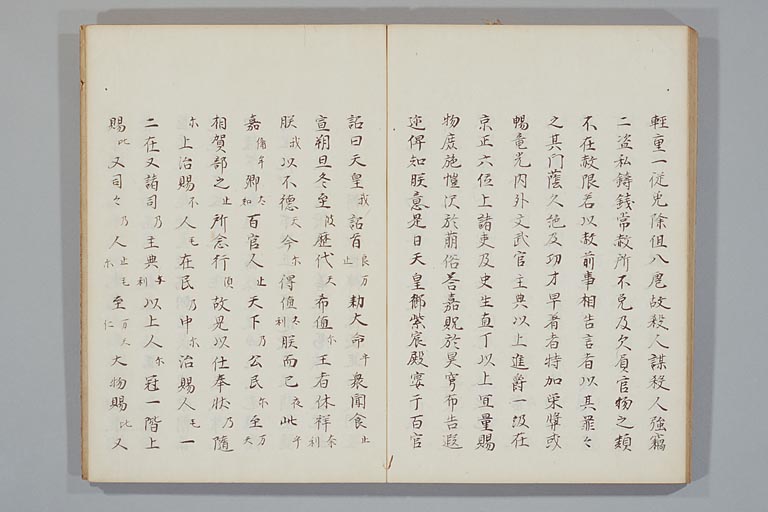 軽重一従免除但八虐故殺人謀殺人強竊
二盗私鋳銭常赦所不免及欠負官物之類
不在赦限若以赦前事相告言者以其罪々
之其門蔭久絶及功才早著者特加栄奨或
暢竜光内外文武官主典以上進爵一級在
京正六位上諸吏及史生直丁以上宜量賜
物庶施愷沢於萌俗荅嘉貺於昊穹布告遐
迩俾知朕意是日天皇御紫宸殿宴于百官
詔曰天皇我詔旨良万止勅大命乎衆聞食止
宣朔旦冬至波歴代天希値尓王者休祥奈利
朕我以不徳天今尓得値太利朕而已夜此乎
嘉備牟卿太知百官人止天下乃公民尓至万天
相賀部之止所念行須故是以仕奉状乃隨
尓上治賜不人毛在民乃中尓治賜人毛一
二在又諸司乃主典与利以上人尓冠一階上
賜比又司々乃人止毛尓至万天仁大物賜比又